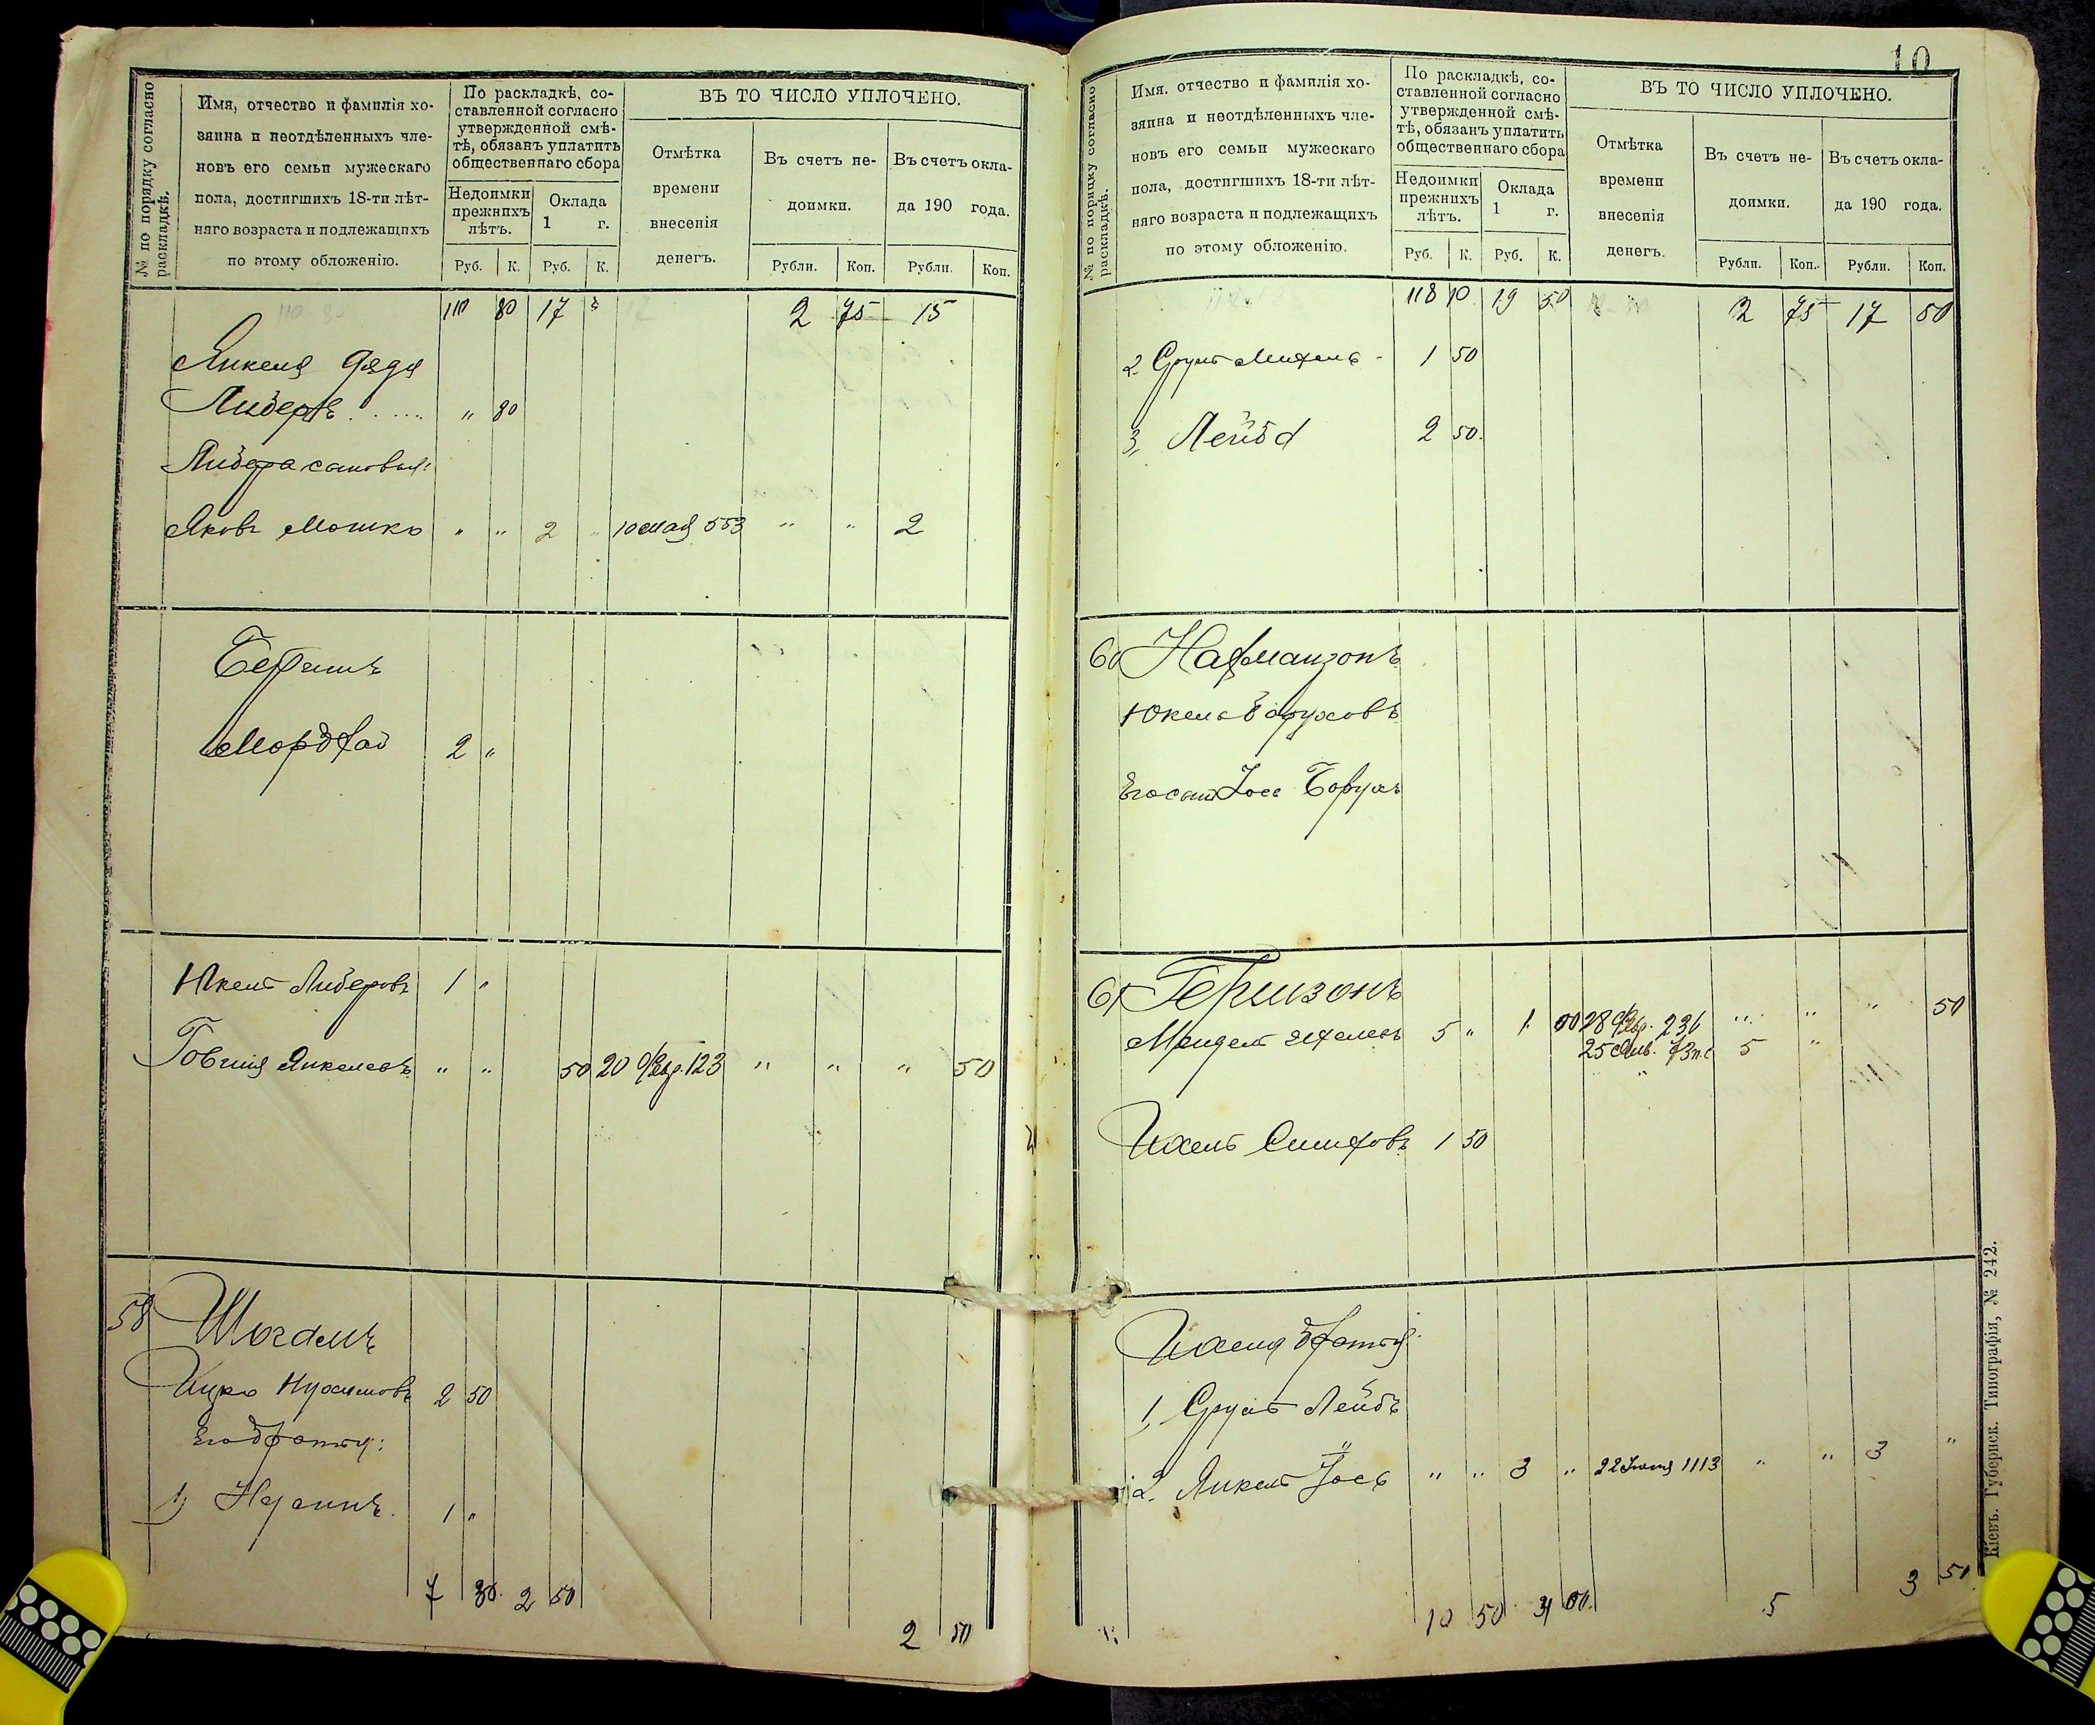 № по порядку согласно раскладкѣ.
Имя, отчество и фамилія хо-
зяина и неотдѣленныхъ чле-
новъ его семьи мужескаго
пола, достигшихъ 18-ти лѣт-
няго возраста и подлежащихъ
по этому обложенію.
По раскладкѣ, со-
ставленной согласно
утвержденной смѣ-
тѣ, обязанъ уплатить
общественнаго сбора
Недоимки
прежнихъ
лѣтъ.
Оклада
1 г.
Руб. К. Руб. К.
ВЪ ТО ЧИСЛО УПЛОЧЕНО.
Отмѣтка
времени
внесенія
денегъ.
Въ счетъ не-
доимки.
Въ счетъ окла-
да 190 года.
Рубли. Коп. Рубли. Коп.
110 80 17 2 75 15
Янкеля дядя
Либеръ . . . . . " 80
Либера сановья:
Яковъ Мошко " " 2 10 мая 553 " " 2
Берлинъ
Мордхай 2 "
Юкель Либеровъ 1 "
Говшия Янкелевъ " " 50 20 февр. 123 " " " 50
58
Ицко Нухимовъ 2 50
Его братья:
1, Нусинъ. 1 "
7 30. 2 50 2 50
10
№ по порядку согласно раскладкѣ.
Имя, отчество и фамилія хо-
зяина и неотдѣленныхъ чле-
новъ его семьи мужескаго
пола, достигшихъ 18-ти лѣт-
няго возраста и подлежащихъ
по этому обложенію.
По раскладкѣ, со-
ставленной согласно
утвержденной смѣ-
тѣ, обязанъ уплатить
общественнаго сбора
Недоимки
прежнихъ
лѣтъ.
Оклада
1 г.
Руб. К. Руб. К.
ВЪ ТО ЧИСЛО УПЛОЧЕНО.
Отмѣтка
времени
внесенія
денегъ.
Въ счетъ не-
доимки.
Въ счетъ окла-
да 190 года.
Рубли. Коп. Рубли. Коп.
118 10 19 50 2 75 17 50
2 Сруль Михель - 1 50
3, Лейба 2 50.
60 Нахманзонъ
Юкель Боруховъ
Его сынъ Іосе Борухъ
61 Гершзонъ
Мендель 5 " 1 50 28 февр. 236 " " " 50
25 Янв. 73 5 "
Ихель 1 50
Ихеля братья:
1, Сруль Лейбъ
2. Янкель Іось " " 3 " 22 Іюня 1113 " " 3 "
10 50 4 50. 5 3 50
Кіевъ. Губернск. Типографія, № 242.